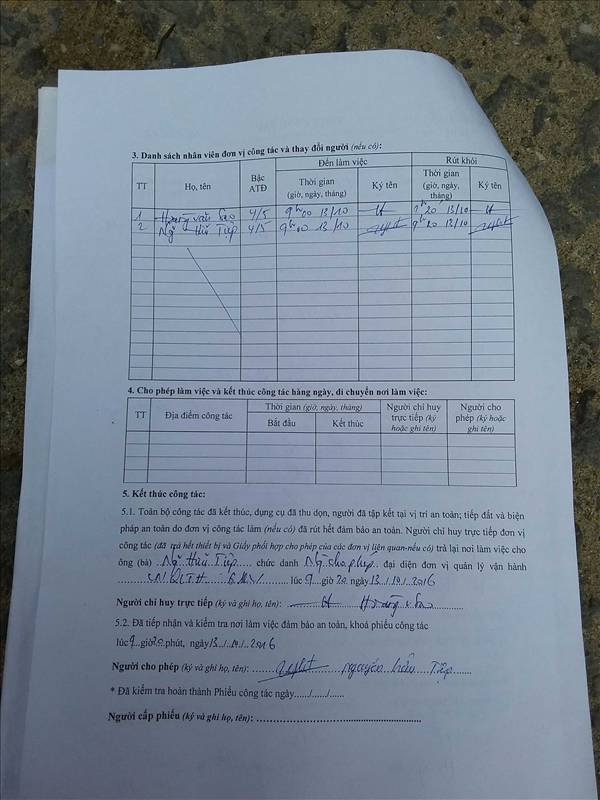 3. Danh sách nhân viên đơn vị công tác và thay đổi người (nếu có):
TT Họ, tên Bậc ATĐ Đến làm việc Rút khỏi
Thời gian (giờ, ngày, tháng) Ký tên Thời gian (giờ, ngày, tháng) Ký tên
1 Hoàng văn Sao 4/5 9h00 13/10 9h20 13/10
2 Ng Hữu Tiệp 4/5 9h00 13/10 9h20 13/10
4. Cho phép làm việc và kết thúc công tác hàng ngày, di chuyển nơi làm việc:
TT Địa điểm công tác Thời gian (giờ, ngày, tháng) Người chỉ huy trực tiếp (ký hoặc ghi tên) Người cho phép (ký hoặc ghi tên)
Bắt đầu Kết thúc
5. Kết thúc công tác:
5.1. Toàn bộ công tác đã kết thúc, dụng cụ đã thu dọn, người đã tập kết tại vị trí an toàn; tiếp đất và biện
pháp an toàn do đơn vị công tác làm (nếu có) đã rút hết đảm bảo an toàn. Người chỉ huy trực tiếp đơn vị
công tác (đã trả hết thiết bị và Giấy phối hợp cho phép của các đơn vị liên quan-nếu có) trả lại nơi làm việc cho
ông (bà) Ng Hữu Tiệp chức danh Ng cho phép đại diện đơn vị quản lý vận hành
lúc 9 giờ 20 ngày 13/10/2016
Người chỉ huy trực tiếp (ký và ghi họ, tên): Hoàng v Sao
5.2. Đã tiếp nhận và kiểm tra nơi làm việc đảm bảo an toàn, khoá phiếu công tác
lúc 9 giờ 20 phút, ngày 13/10/2016
Người cho phép (ký và ghi họ, tên): nguyễn hữu Tiệp
* Đã kiểm tra hoàn thành Phiếu công tác ngày....../....../......
Người cấp phiếu (ký và ghi họ, tên): ..............................